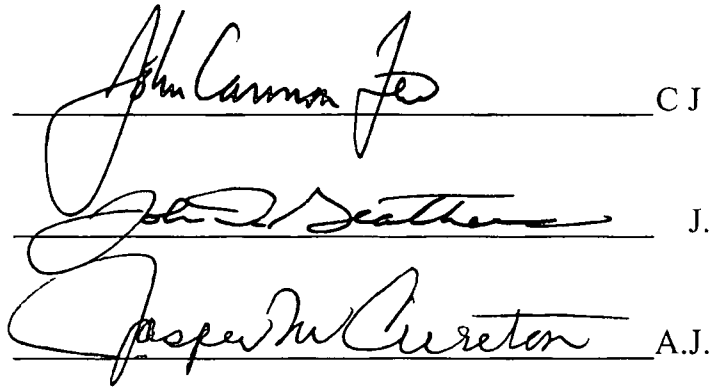 John Cannon Few C J
John D. Geathers J.
Jasper M Cureton A.J.